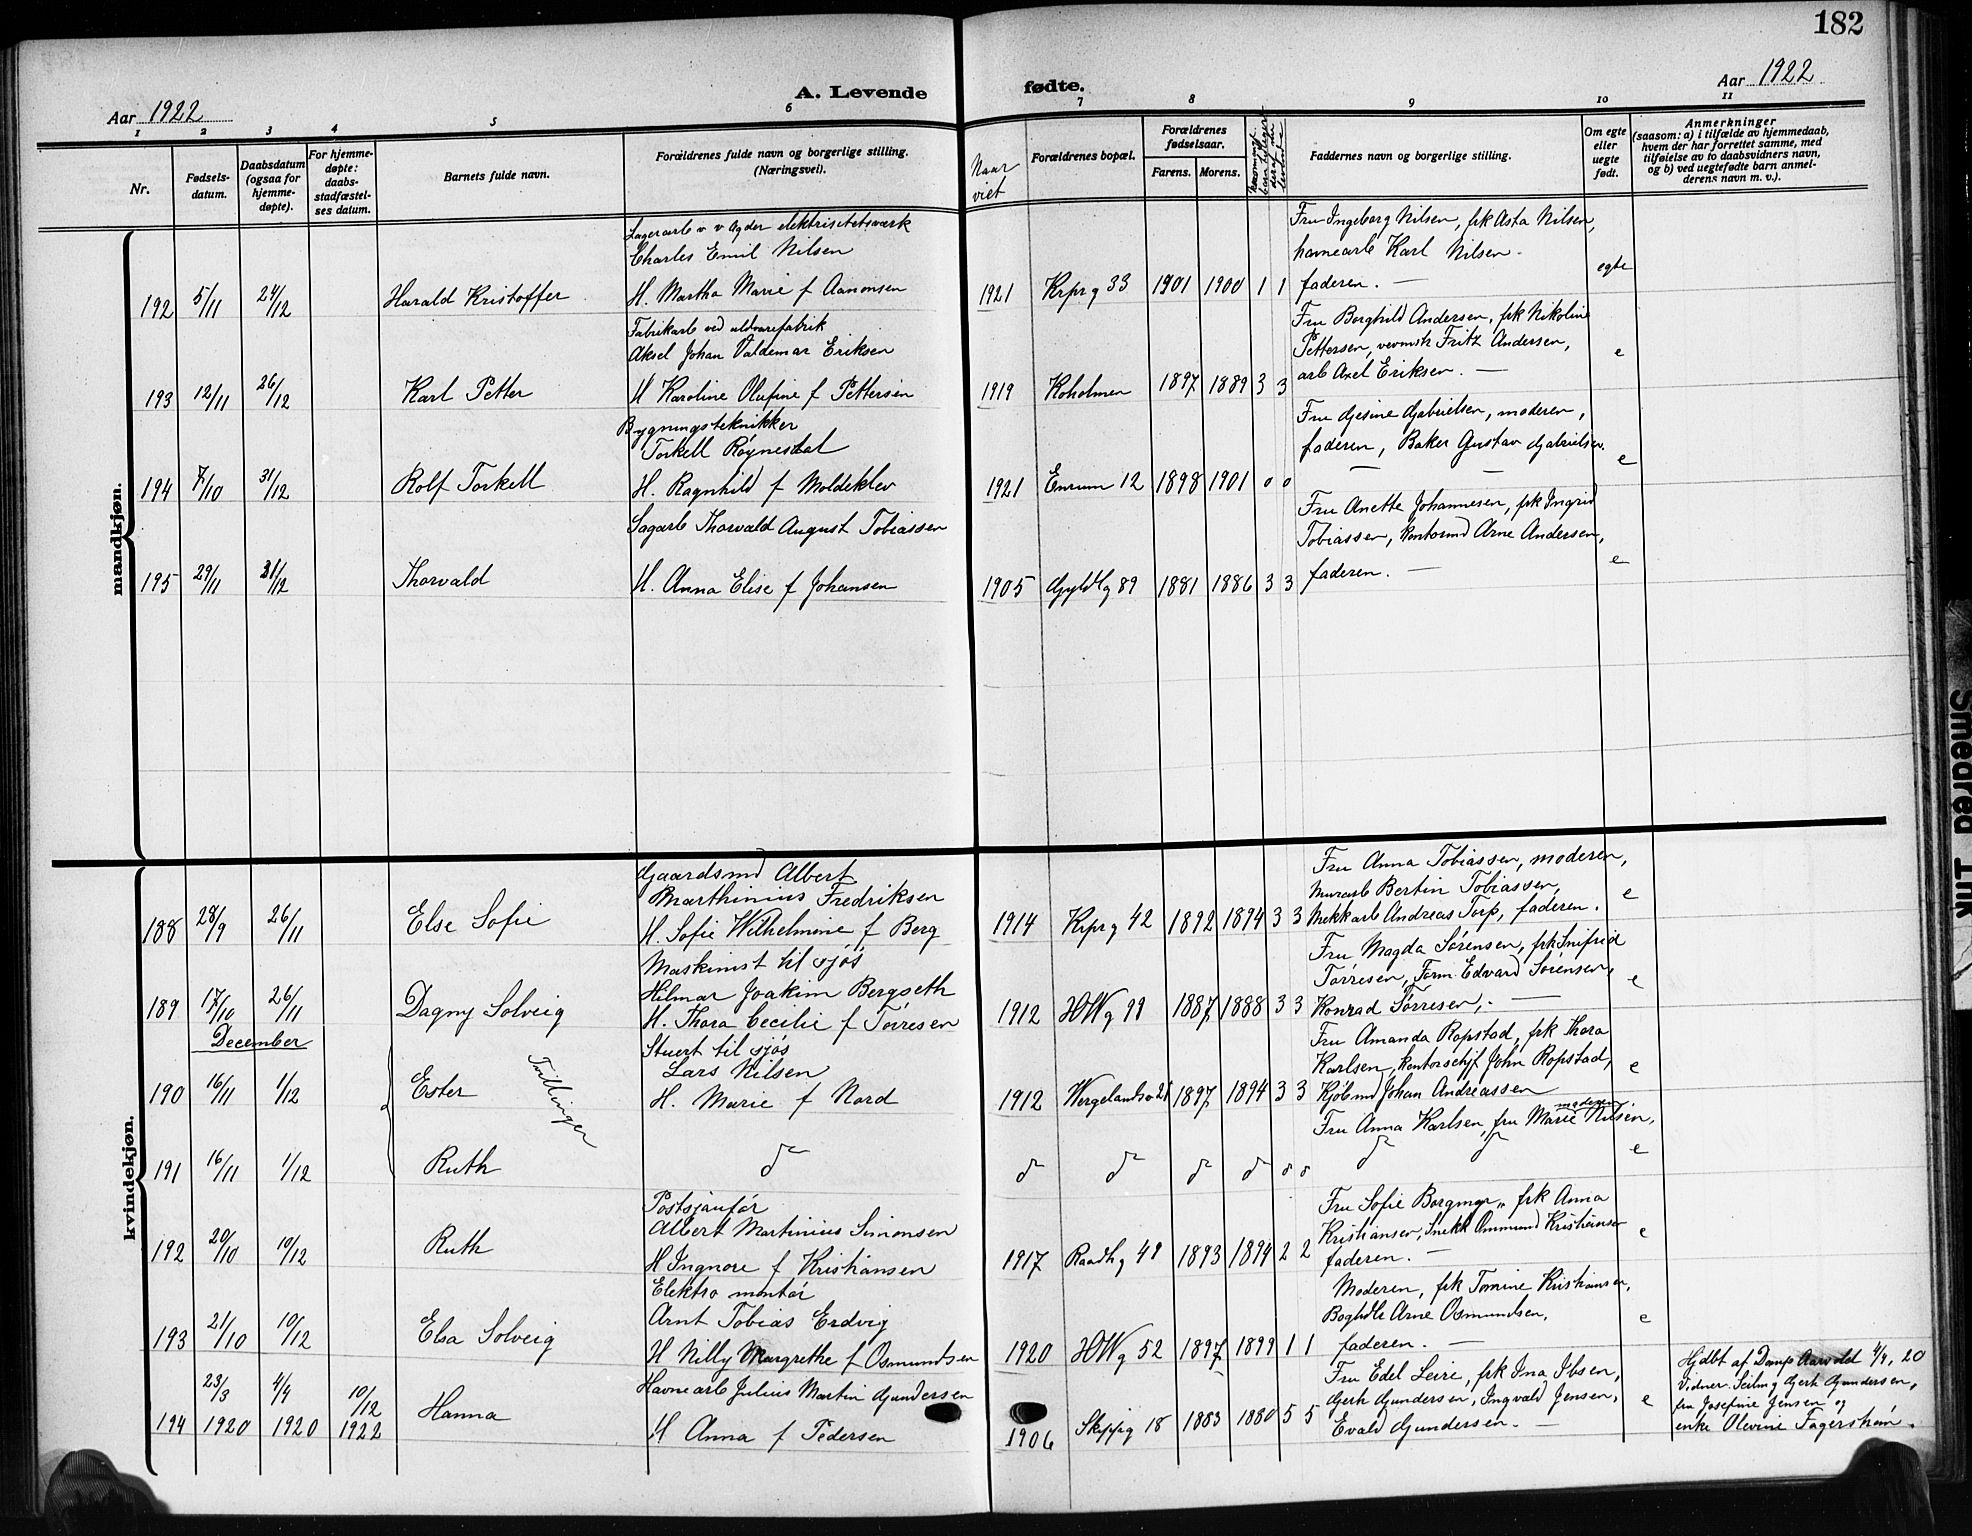 182
Aar 1922
A. Levende
fødte.
Aar 1922
1 2 3 4 5 6 7 8 9 10 11
Nr.
Fødsels-
datum.
Daabsdatum
(ogsaa for
hjemme-
døpte).
For hjemme-
døpte:
daabs-
stadfæstel-
ses datum.
Barnets fulde navn.
Forældrenes fulde navn og borgerlige stilling.
(Næringsvei).
Naar
viet
Forældrenes bopæl.
Forældrenes
fødselsaar.
Farens. Morens.
Faddernes navn og borgerlige stilling.
Om egte
eller
uegte
født.
Anmerkninger
(saasom: a) i tilfælde av hjemmedaab,
hvem der har forrettet samme, med
tilføielse av to daabsvidners navn,
og b) ved uegtefødte barn anmel-
derens navn m. v.).
mandkjøn.
Lagerarb v. v Agder elektrisitetsværk
Charles Emil Nilsen
192 5/11 24/12 Harald Kristoffer H. Martha Marie f Aanonsen 1921 Krprg 33 1901 1900 1 1
Fru Ingeborg Nilsen, frk Asta Nilsen,
havnearb Karl Nilsen.
faderen. —
egte
Fabrikarb ved uldvarefabrik
Aksel Johan Valdemar Eriksen
193 12/11 26/12 Karl Petter H Karoline Olufine f Pettersen 1919 Koholmen 1897 1889 3 3
Fru Borghild Andersen, frk Nikoline
Pettersen, Fritz Andersen,
arb Axel Eriksen. —
e
Bygningsteknikker
Torkell Røynestal
194 7/10 31/12 Rolf Torkell H. Ragnhild f Moldeklev 1921 Enrum 12 1898 1901 0 0
Fru Gjesine Gabrielsen, moderen,
faderen, Baker Gustav Gabrielsen.
e
Sagarb Thorvald August Tobiassen
195 29/11 31/12 Thorvald H. Anna Elise f Johansen 1905 Gyldlg 89 1881 1886 3 3
Fru Anette Johannesen, frk Ingrid
Tobiassen, kontormd Arne Andersen,
faderen. —
e
kvindekjøn.
Gaardsmd Albert
Marthinius Fredriksen
188 28/9 26/11 Else Sofie H. Sofie Wilhelmine f Berg 1914 Krprg 42 1892 1894 3 3
Fru Anna Tobiassen, moderen,
Murarb Bertin Tobiassen,
Mekkarb Andreas Torp, faderen.
e
Maskinist til sjøs
Hilmar Joakim Bergseth
189 17/10 26/11 Dagny Solveig H. Thora Cecilie f Tørresen 1912 HWg 99 1887 1888 3 3
Fru Magda Sørensen, frk Snifrid
Tørresen, Form. Edvard Sørensen,
Konrad Tørresen. —
e
December
Stuert til sjøs
Lars Nilsen
190 16/11 1/12 Ester Tvillinger H. Marie f Nord 1912 Wergelandsv 28 1897 1894 3 3
Fru Amanda Ropstad, frk Thora
Karlsen, kontorschf John Ropstad,
Kjøbmd Johan Andreassen
e
Fru Anna Karlsen, fru Marie Nilsen, moderen
191 16/11 1/12 Ruth do do do do do do do do do
e
Postsjauffør
Albert Martinius Simonsen
192 20/10 10/12 Ruth H Ingnore f Kristiansen 1917 Raadhg 49 1893 1894 2 2
Fru Sofie Borgmyr, frk Anna
Kristiansen, Snekk Ommund Kristiansen
faderen. —
e
Elektro montør
Arnt Tobias Erdvig
193 21/10 10/12 Elsa Solveig H Nilly Margrethe f Osmundsen 1920 HWg 52 1897 1899 1 1
Moderen, frk Tomine Kristiansen,
Boghdl Arne Osmundsen,
faderen. —
e
Havnearb Julius Martin Gundersen
194 23/3 1920 4/4 1920 10/12 1922 Hanna H Anna f Pedersen 1906 Skippg 18 1883 1880 5 5
Fru Edel Leire, frk Ina Ibsen,
Gerh Gundersen, Ingvald Jensen,
Evald Gundersen. —
e
Hjdbt af Damps Aarvold 4/4, 20
Vidner Seilmg Gerh Gundersen,
fru Josefine Jensen og
enke Olevine Fagerstrøm.